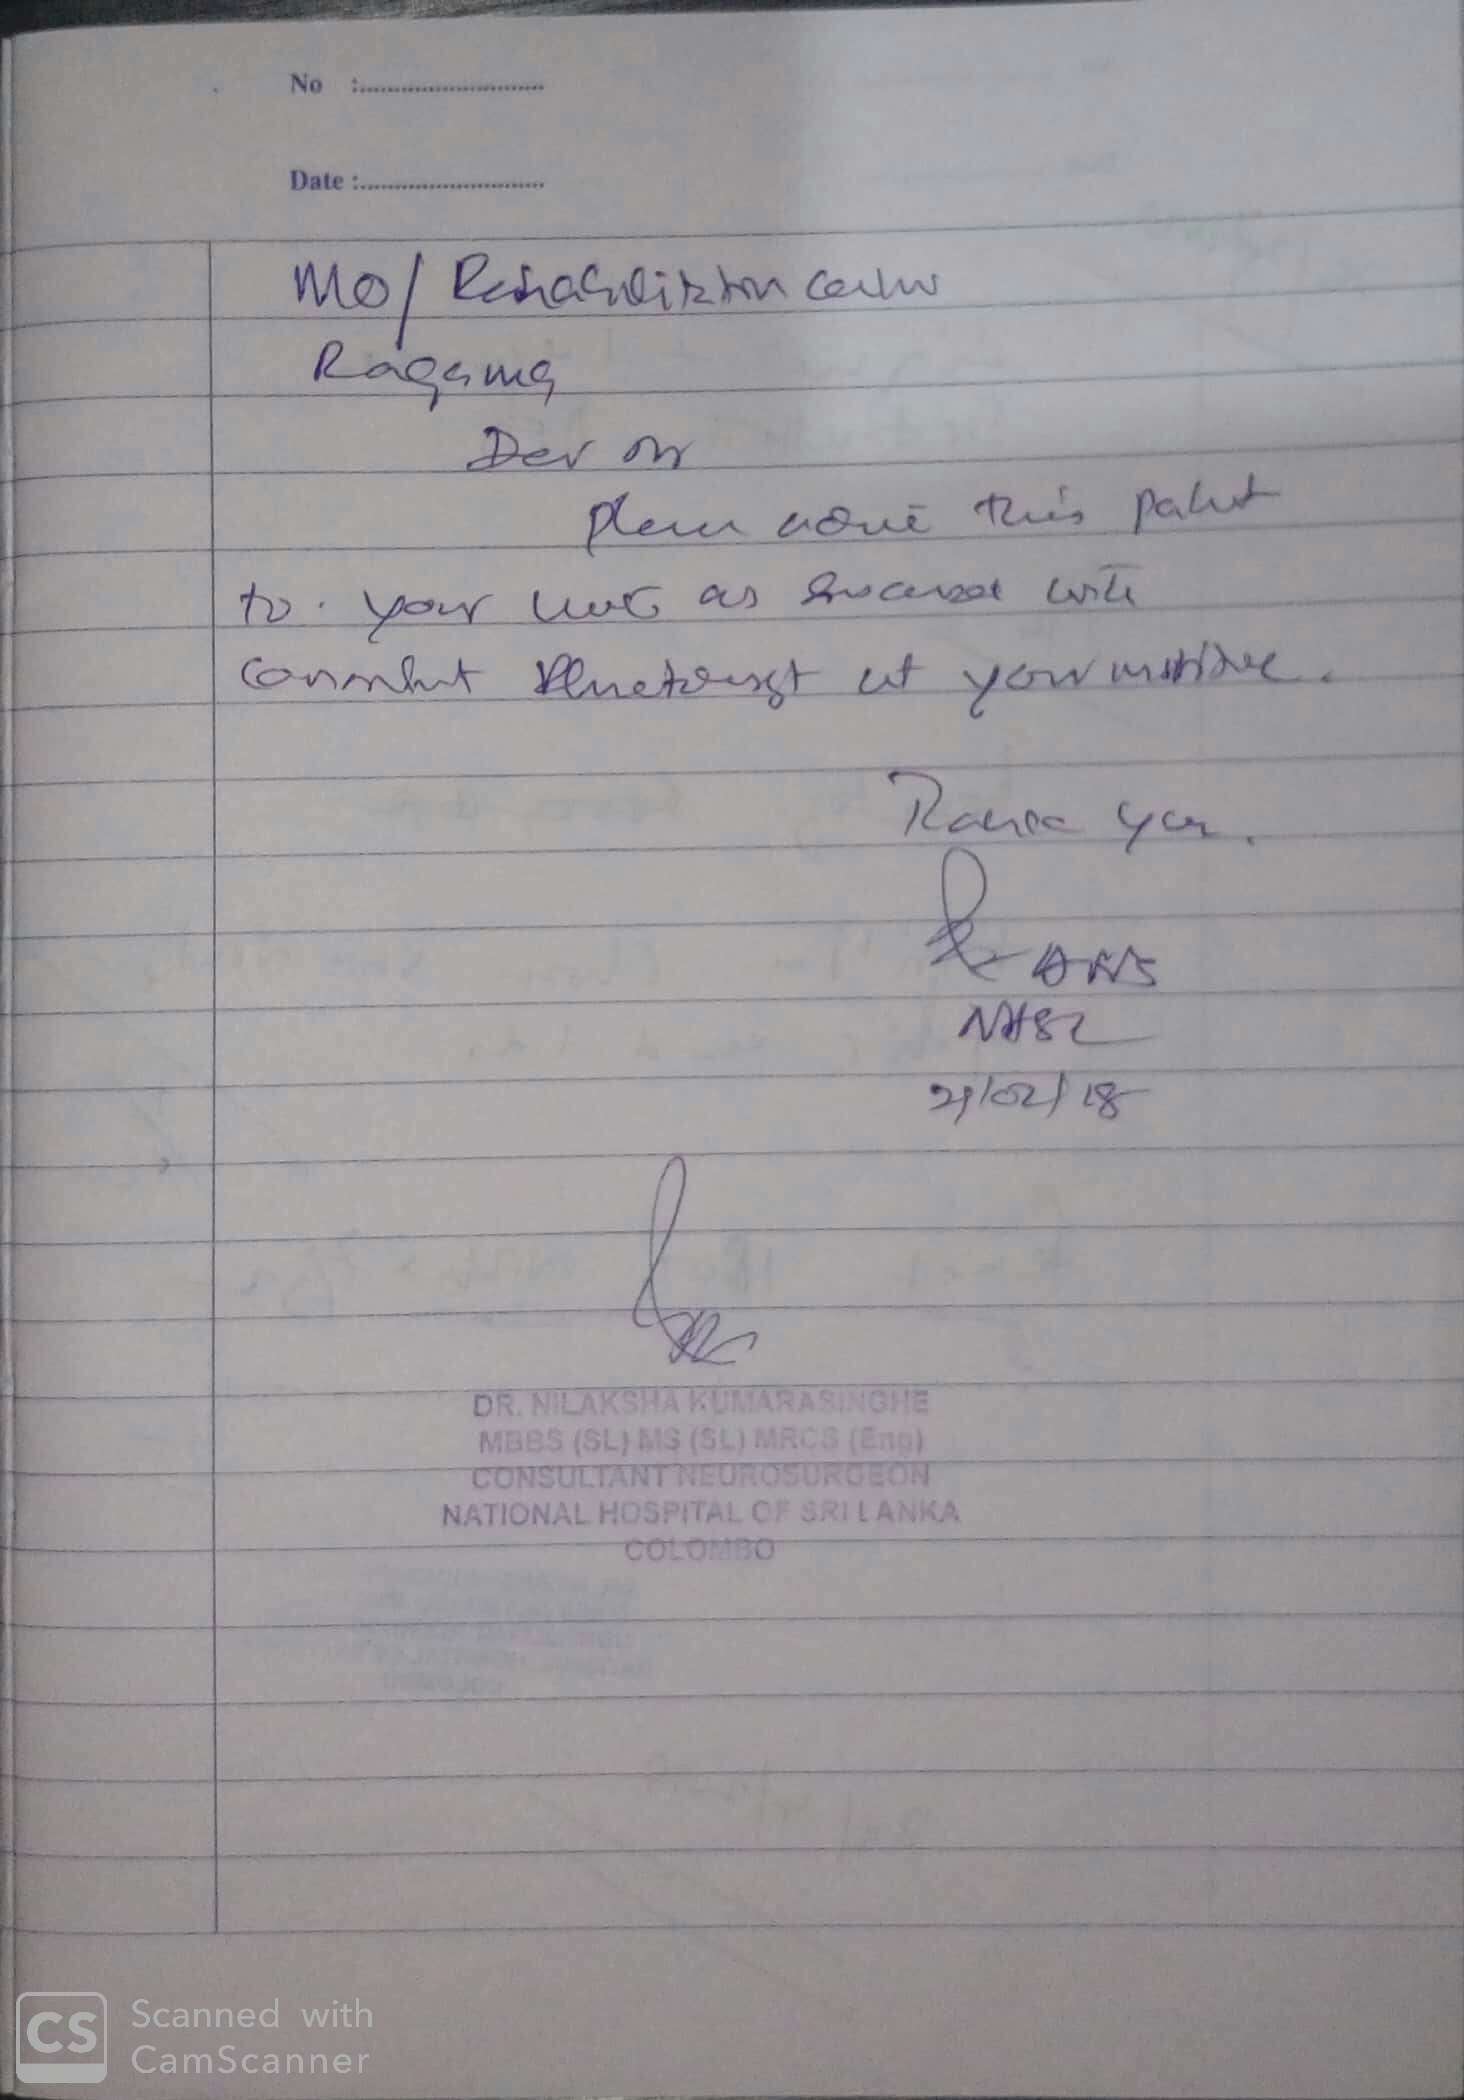 No :............................
Date :............................
MO/ Rehabilitation Center
Ragama
Dear Sir
Please this patient
to your unit as with
Consultant at your institute.
Thank you.
NHSL
21/02/18
DR. NILAKSHA KUMARASINGHE
MBBS (SL) MS (SL) MRCS (Eng)
CONSULTANT NEUROSURGEON
NATIONAL HOSPITAL OF SRI LANKA
COLOMBO
CS
Scanned with
CamScanner